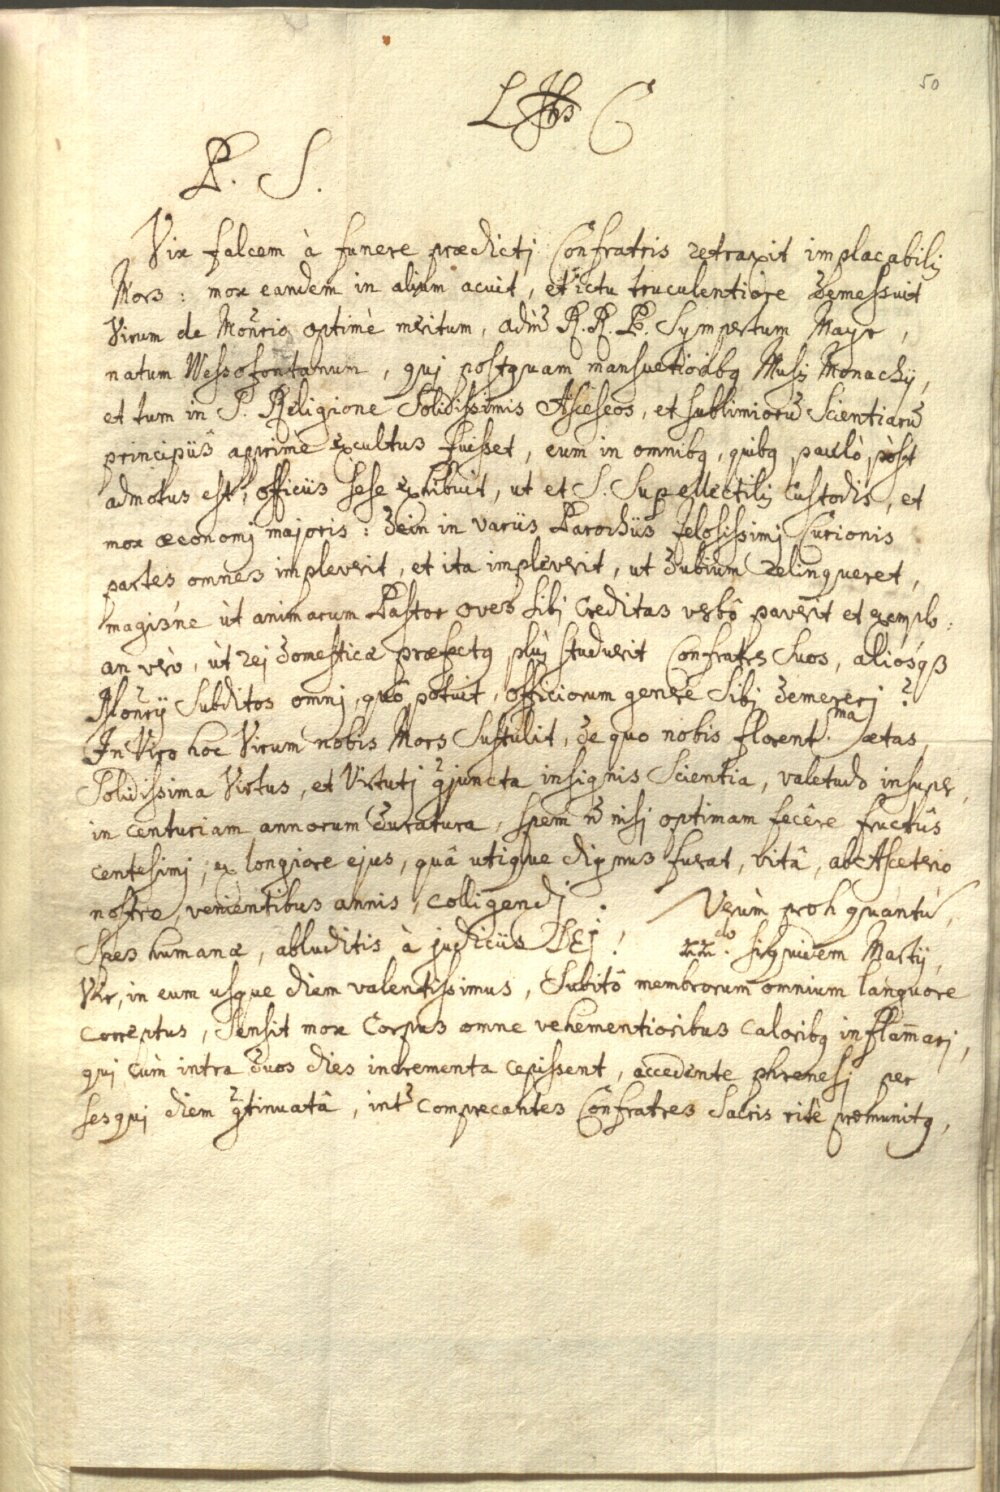 50
L. JHS C
P. S.
Vix falcem à funere prædictj Confratris retraxit implacabilis
Mors: mox eandem in alium acuit, et ictu truculentiore demessuit
Virum de Monrio optimè meritum, adm̃ R. R. P. Sympertum Mayr,
natum Wessofontanum, quj postquam mansuetioribq Musis Monachij,
et tum in S. Religione Solidissimis Asceseos, et sublimiorũ Scientiarũ
principiis apprimè excultus fuisset, eum in omnibq, quibq paulò pòst
admotus est, officiis sese exhibuit, ut et S. Supellectilis Custodis, et
mox œconomj majoris: dein in variis Parochiis zelosissimj Curionis
partes omnes impleverit, et ita impleverit, ut dubium relinqueret,
magisne ùt animarum Pastor oves sibj creditas verbô paverit et exemplo:
an verò, ùt rej domesticæ præfectq plus studuerit Confratres suos, aliosqꝫ
Monrij Subditos omnj, quô potuit, officiorum genere sibj demererj?
In Viro hoc Virum nobis Mors sustulit, de quo nobis florent.ma ætas,
Solidissima Virtus, et Virtutj ɔjuncta insignis Scientia, valetudo insuper,
in centuriam annorum duratura, spem ñ nisj optimam fecêre fructûs
centesimj, ex longiore ejus, quâ utique dignus fuerat, vitâ, ab Asceterio
nostro, venientibus annis, colligendj. Verùm proh quantũ,
Spes humanæ, abluditis à judiciis DEj! 22do. siquidem Martij,
Vir, in eum usque diem valentissimus, subitô membrorum omnium languore
correptus, sensit mox corpus omne vehementioribus caloribq inflam̄arj,
quj cùm intra duos dies incrementa cepissent, accedente phrenesj per
sesquj diem ɔtinuatâ, int̃ comprecantes Confratres Sacris ritè præmunitq,